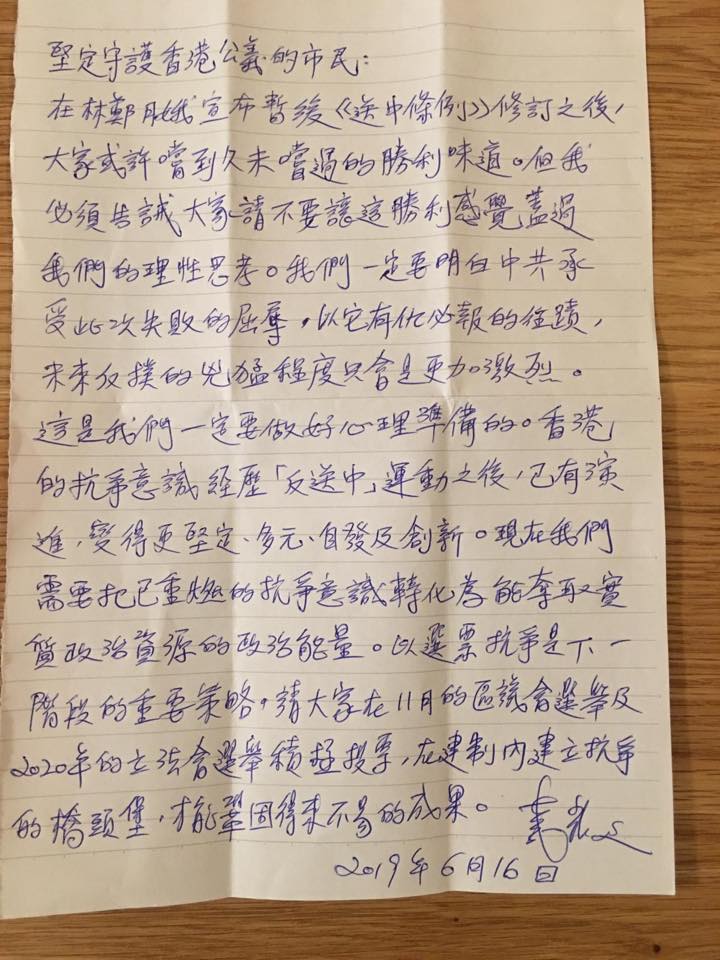 堅定守護香港公義的市民：
在林鄭月娥宣布暫緩《送中條例》修訂之後，
大家或許嚐到久未嚐過的勝利味道。但我
必須告誡大家請不要讓這勝利感覺蓋過
我們的理性思考。我們一定要明白中共承
受此次失敗的屈辱，以它有仇必報的往蹟，
未來反撲的兇猛程度只會是更加激烈。
這是我們一定要做好心理準備的。香港
的抗爭意識經歷「反送中」運動之後，已有演
進，變得更堅定、多元、自發及創新。現在我們
需要把已重燃的抗爭意識轉化為能奪取實
質政治資源的政治能量。以選票抗爭是下一
階段的重要策略，請大家在11月的區議會選舉及
2020年的立法會選舉積極投票，在建制內建立抗爭
的橋頭堡，才能鞏固得來不易的成果。
2019年6月16日